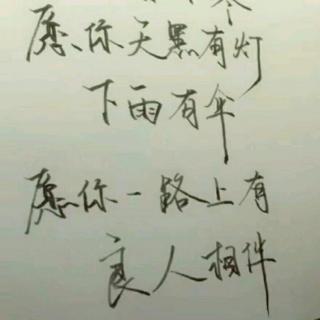 愿你天黑有灯
下雨有伞
愿你一路上有
良人相伴